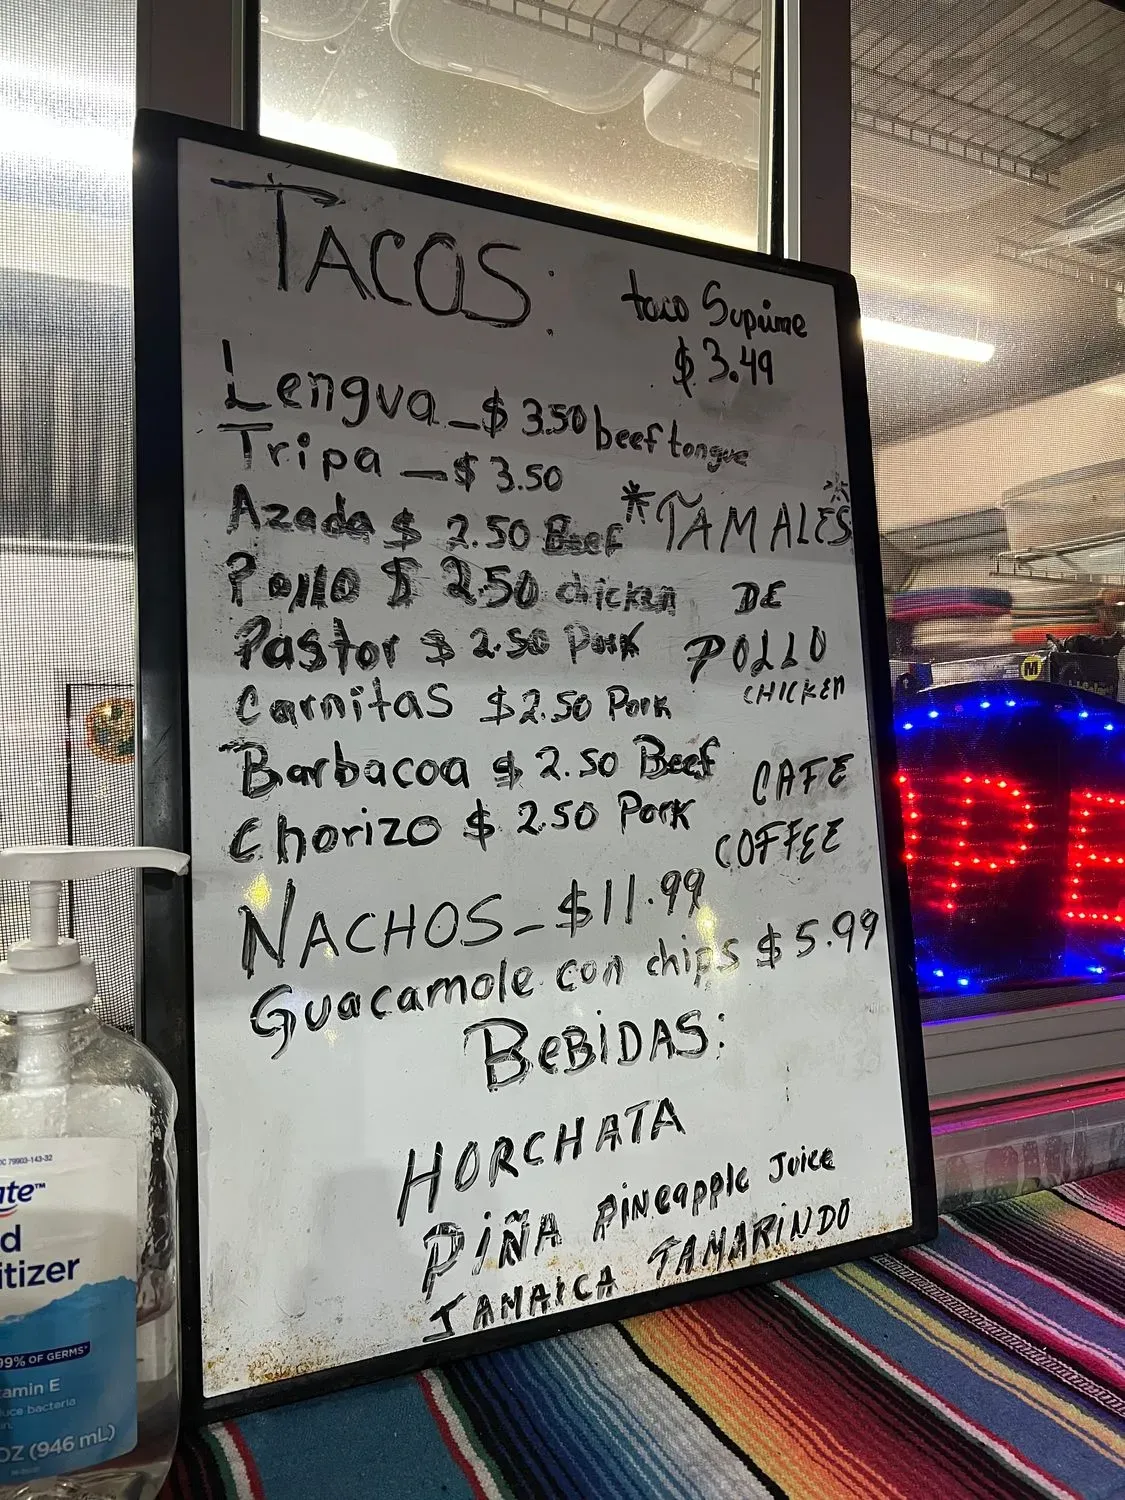 TACOS:
taco Supiime
$3.49
Lengua - $3.50 beef tongue
Tripa - $3.50
Azada $2.50 Beef
Pollo $2.50 chicken
Pastor $2.50 Pork
Carnitas $2.50 Pork
Barbacoa $2.50 Beef
Chorizo $2.50 Pork
*TAMALES*
DE
POLLO
CHICKEN
CAFE
COFFEE
NACHOS - $11.99
Guacamole con chips $5.99
BeBiDAS:
HORCHATA
PiÑA Pineapple Juice
JAMAICA TAMARiNDO
ate™
d
itizer
99% OF GERMS*
tamin E
duce bacteria
OZ (946 mL)
M
OPE